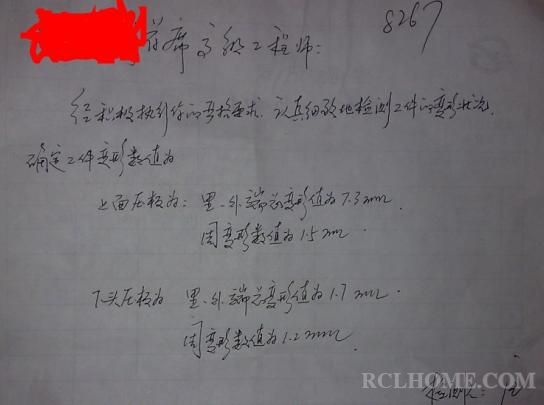 8267
首席高级工程师：
经积极执行你的严格要求，认真细致地检测工件的变形状况，
确定工件变形数值为
上面压板为：里、外端总变形值为7.3mm.
周变形数值为1.5mm
下头压板为 里、外端总变形值为1.7mm.
周变形数值为1.2mm.
检测人：
RCLHOME.COM